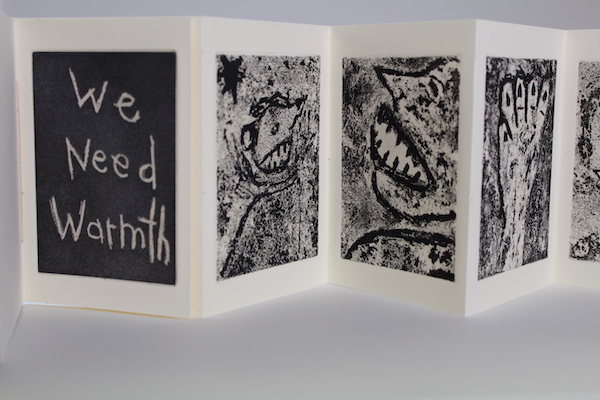 We
Need
Warmth